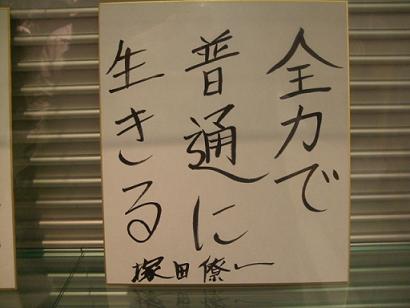 全力で
普通に
生きる
塚田僚一